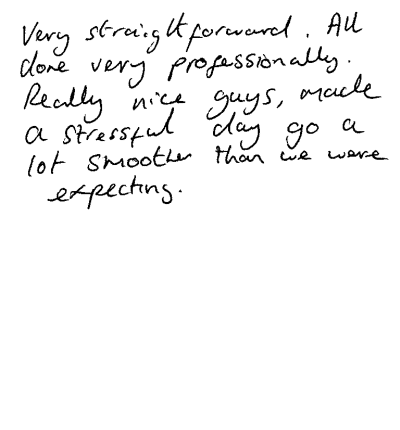 Very straightforward. All
done very professionally.
Really nice guys, made
a stressful day go a
lot smoother than we were
expecting.